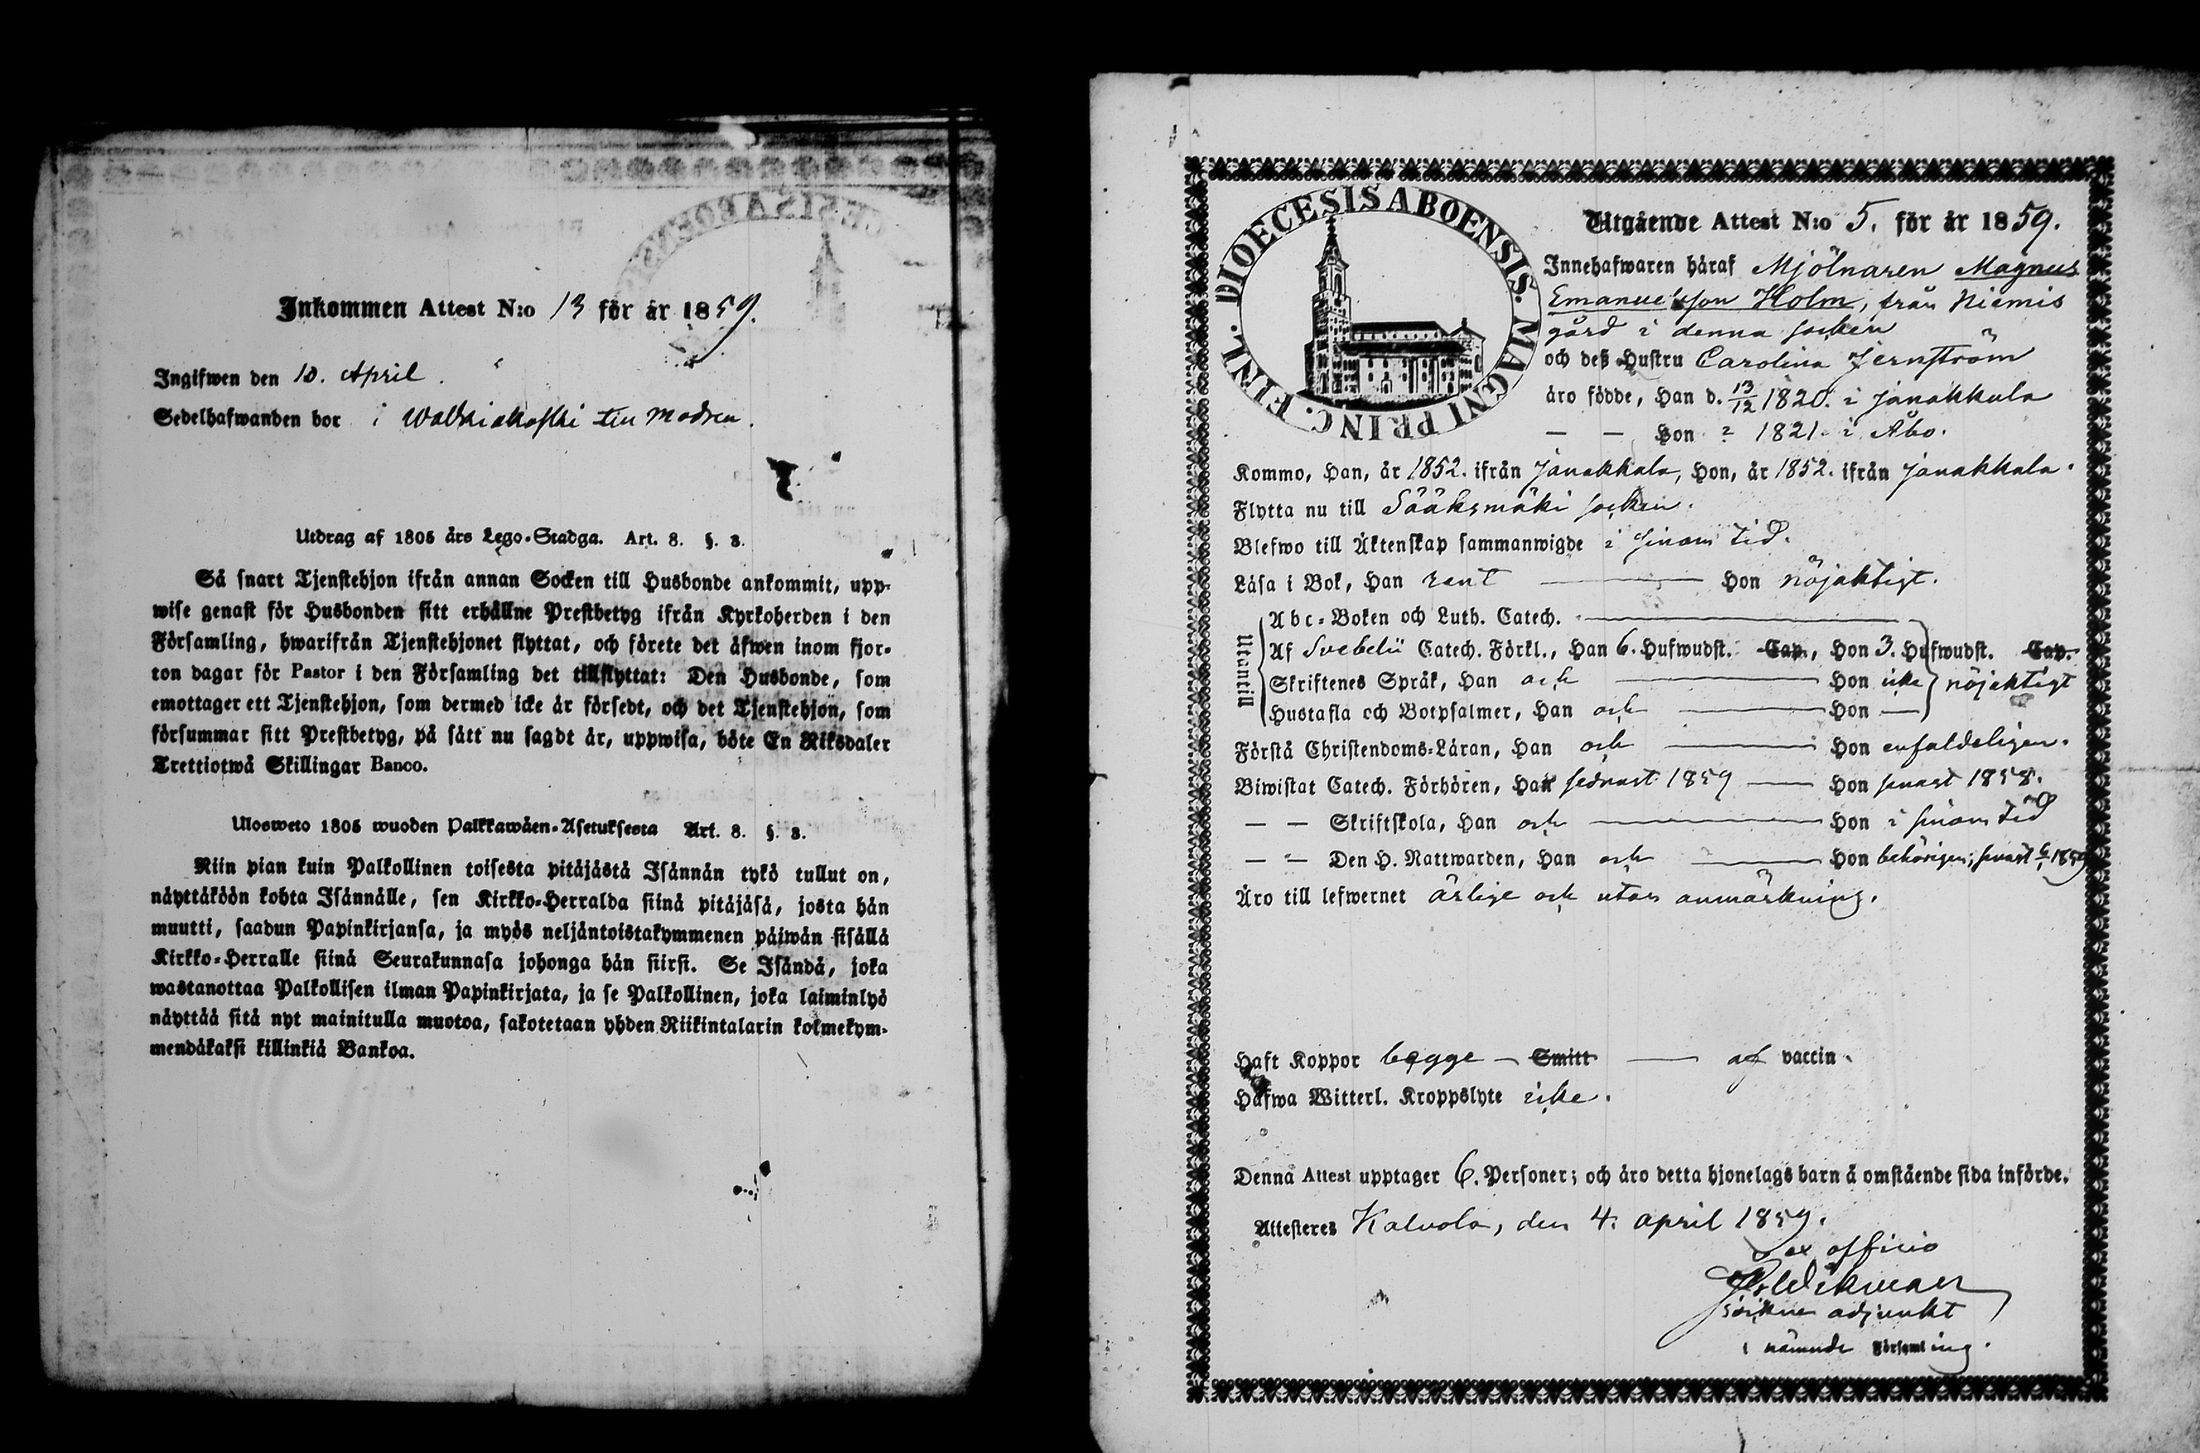 Inkommen Attest N:o 13 för år 1859.
Ingifwen den 10. April.
Sedelhafwanden bor i
Utdrag af 1805 års Lego-Stadga. Art. 8. §. 8.
Så snart Tjenstehjon ifrån annan Socken till Husbonde ankommit, upp-
wise genast för Husbonden sitt erhållne Prestbetyg ifrån Kyrkoherden i den
Församling, hwarifrån Tjenstehjonet flyttat, och förete det äfwen inom fjor-
ton dagar för Pastor i den Församling det tillflyttat: Den Husbonde, som
emottager ett Tjenstehjon, som dermed icke är försedt, och det Tjenstehjon, som
försummar sitt Prestbetyg, på sätt nu sagdt är, uppwisa, böte En Riksdaler
Trettiotwå Skillingar Banco.
Ulosweto 1805 wuoden Palkkawäen-Asetuksesta Art. 8. §. 8.
Niin pian kuin Palkollinen toisesta pitäjästä Isännän tykö tullut on,
näyttäköön kohta Isännälle, sen Kirkko-Herralda siinä pitäjäsä, josta hän
muutti, saadun Papinkirjansa, ja myös neljäntoistakymmenen päiwän sisällä
Kirkko-Herralle siinä Seurakunnasa johonga hän siirsi. Se Isändä, joka
wastanottaa Palkollisen ilman Papinkirjata, ja se Palkollinen, joka laiminlyö
näyttää sitä nyt mainitulla muotoa, sakotetaan yhden Riikintalarin kolmekym-
mendäkaksi killinkiä Bankoa.
DIOECESIS ABOENSIS. MAGNI PRINC. FINL.
Utgående Attest N:o 5. för år 1859.
Innehafwaren häraf Mjölnaren Magnus
Emanuelsson Holm, från Niemis
gård i denna socken
och dess Hustru Carolina Jernström
äro födde, Han d. 13/12 1820. i Janakkala
— — Hon ? 1821. i Åbo.
Kommo, Han, år 1852. ifrån Janakkala, Hon, år 1852. ifrån Janakkala.
Flytta nu till Sääksmäki socken.
Blefwo till Äktenskap sammanwigde i sinom tid.
Läsa i Bok, Han rent — Hon nöjaktigt.
Utantill
Abc-Boken och Luth. Catech. —
Af Svebelii Catech. Förkl., Han 6. Hufwudst. Cap., Hon 3. Hufwudst. Cap.
Skriftenes Språk, Han och — Hon icke nöjaktigt
Hustafla och Botpsalmer, Han och — Hon —
Förstå Christendoms-Läran, Han och — Hon enfaldeligen.
Biwistat Catech. Förhören, Han sednast 1859 — Hon senast 1858.
— — Skriftskola, Han och — Hon i sinom tid
— — Den H. Nattwarden, Han och — Hon behörigen, senast 1859
Äro till lefwernet ärlige och utan anmärkning.
Haft Koppor begge — Smitt — af vaccin.
Hafwa Witterl. Kroppslyte icke.
Denna Attest upptager 6. Personer; och äro detta hjonelags barn å omstående sida införde.
Attesteres Kalvola, den 4. april 1859.
ex officio
adjunkt
i nämnde Församling.